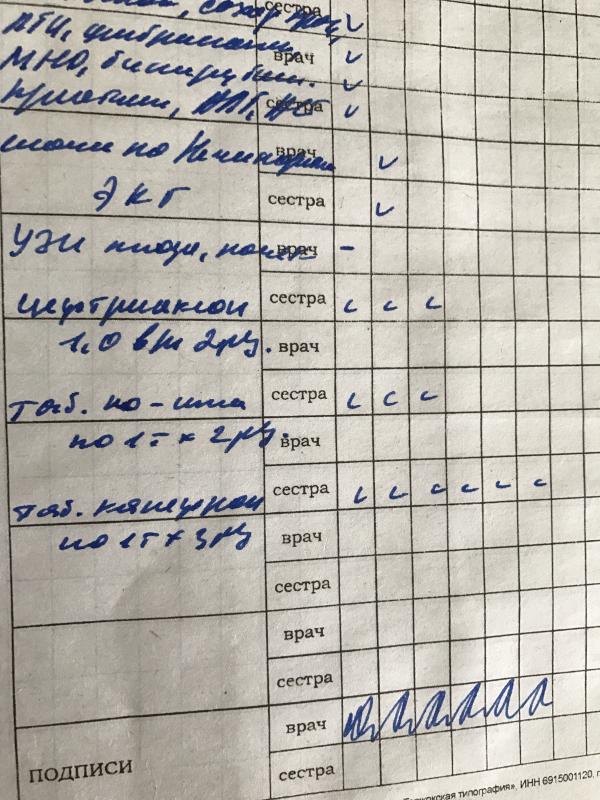 сахар крови, сестра
АТЧ, фибриноген, врач
МНО, билирубин.
креатинин, АЛТ, АСТ сестра
мочи по Нечипоренко врач
ЭКГ сестра
УЗИ плода, почек врач
цефтриаксон сестра
1,0 в/м 2 р/д. врач
таб. но-шпа сестра
по 1т х 2 р/д. врач
таб. канефрон сестра
по 1т х 3 р/д врач
сестра
врач
сестра
врач
ПОДПИСИ сестра
типография», ИНН 6915001120, г.